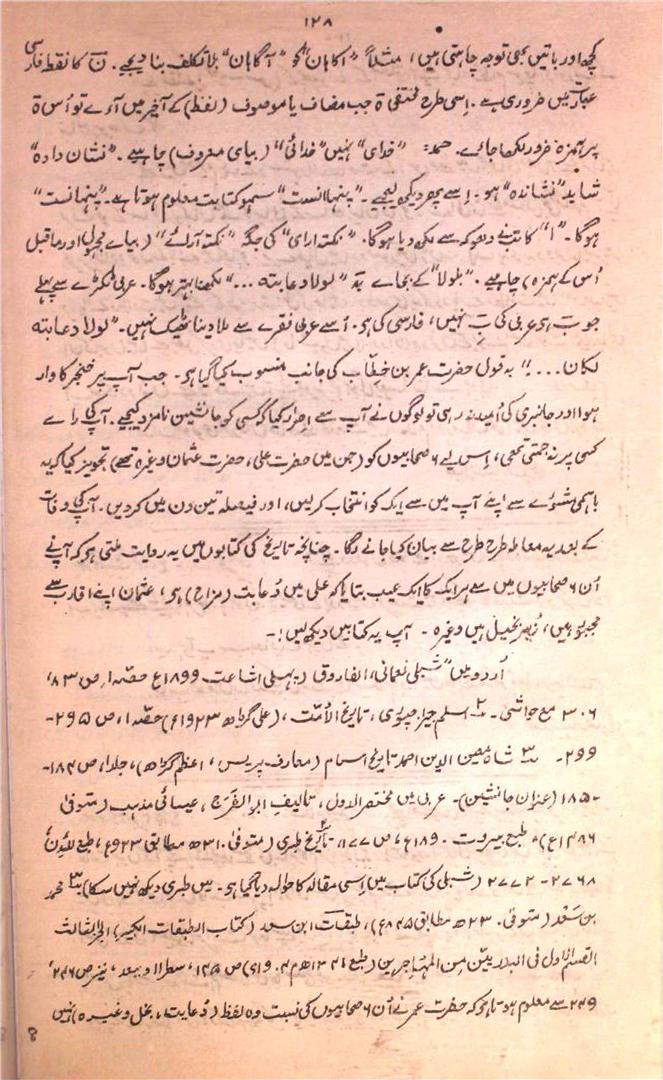 ۱۲۸
کچھ اور باتیں بھی توجہ چاہتی ہیں، مثلاً "اکاہان" کو "آگاہان" بلا تکلف بنا دیجیے۔ نؔ کا نقطہ فارسی
عبارت میں ضروری ہے۔ اسی طرح مختفی ہ جب مضاف یا موصوف (لفظ) کے آخیر میں آوے تو اُس ہ
پر ہمزہ ضرور لکھا جائے۔ "خدای" نہیں "خدائی" (بیای معروف) چاہیے۔ "نشان دادہ"
شاید "نشاندہ" ہو۔ اِسے پھر دیکھ لیجیے۔ "پنہا انست" سہوِ کتابت معلوم ہوتا ہے۔ "پنہانست"
ہوگا۔ "ا" کاتب نے دھوکہ سے لکھ دیا ہوگا۔ "نکتہ ارای" کی جگہ "نکتہ آرائے" (بیاے مجہول اور ماقبل
اُس کے ہمزہ) چاہیے۔ "بلولا" کے بجاے بہ "لولا دعابتہ ..." لکھنا بہتر ہوگا۔ عربی ٹکڑے سے پہلے
جو بؔ ہے عربی کی بؔ نہیں، فارسی کی ہے۔ اُسے عربی فقرے سے ملا دینا ٹھیک نہیں۔ "لولا دعابتہ
لکان ....!" یہ قول حضرت عمر بن خطّاب کی جانب منسوب کیا گیا ہے۔ جب آپ پر خنجر کا وار
ہوا اور جانبری کی اُمید نہ رہی تو لوگوں نے آپ سے اصرار کیا کہ کسی کو جانشین نامزد کیجیے۔ آپ کی راے
کسی پر نہ جمتی تھی، اِس لیے ۶ صحابیوں کو (جن میں حضرت علی، حضرت عثمان وغیرہ تھے) تجویز کیا کہ یہ
باہمی مشورے سے اپنے آپ میں سے ایک کو انتخاب کر لیں، اور فیصلہ تین دن میں کر دیں۔ آپ کی وفات
کے بعد یہ معاملہ طرح طرح سے بیان کیا جانے لگا۔ چنانچہ تاریخ کی کتابوں میں یہ روایت ملتی ہے کہ آپ نے
اُن ۶ صحابیوں میں سے ہر ایک کا ایک عیب بتایا کہ علی میں دُعابت (مزاح) ہے، عثمان اپنے اقارب سے
مجبور ہیں، زُبیر بخیل ہیں وغیرہ۔ آپ یہ کتابیں دیکھ لیں!۔
اُردو میں شبلی نعمانی، الفاروق (پہلی اشاعت ۱۸۹۹ع حصّہ ۱، ص ۸۳،
۳۰۶ مع حواشی۔ ۲ اسلم جیراجپوری، تاریخ الاُمّت، (علی گڑھ ۱۹۲۳ع) حصّہ ۱، ص ۲۹۵۔
۲۹۹۔ ۳ شاہ معین الدین احمد تاریخ اسلام (معارف پریس، اعظم گڑھ)، جلد ۱، ص ۱۸۴۔
۱۸۵۔ (عنوان جانشین)۔ عربی میں مختصر الدول، تالیف ابو الفرج، عیسائی مذہب (متوفیٰ
۱۲۸۶ع)، طبع بیروت۔ ۱۸۹۰ع، ص ۱۷۷۔ ۲ تاریخ طبری (متوفیٰ ۳۱۰ھ مطابق ۹۲۳ع)، طبع لائڈن
۲۷۶۸۔ ۲۷۷۲ (شبلی کی کتاب میں اِسی مقالہ کا حوالہ دیا گیا ہے۔ میں طبری دیکھ نہیں سکا) ۳ محمد
بن سَعْد (متوفی ۲۳۰ھ مطابق ۸۴۵ع)، طبقات ابن سعد (کتاب الطبقات الکبیر) الجزء الثالث
القسم الاول فی البدریین مِن المہَاجرین (طبع ۱۳۲۱ھ م ۱۹۰۴ع) ص ۱۴۵، سطر ۱۱ و بعد، نیز ص ۲۴۶،
۲۴۹ سے معلوم ہوتا ہے کہ حضرت عمر نے اُن ۶ صحابیوں کی نسبت وہ لفظ (دُعابت، بخل وغیرہ) نہیں